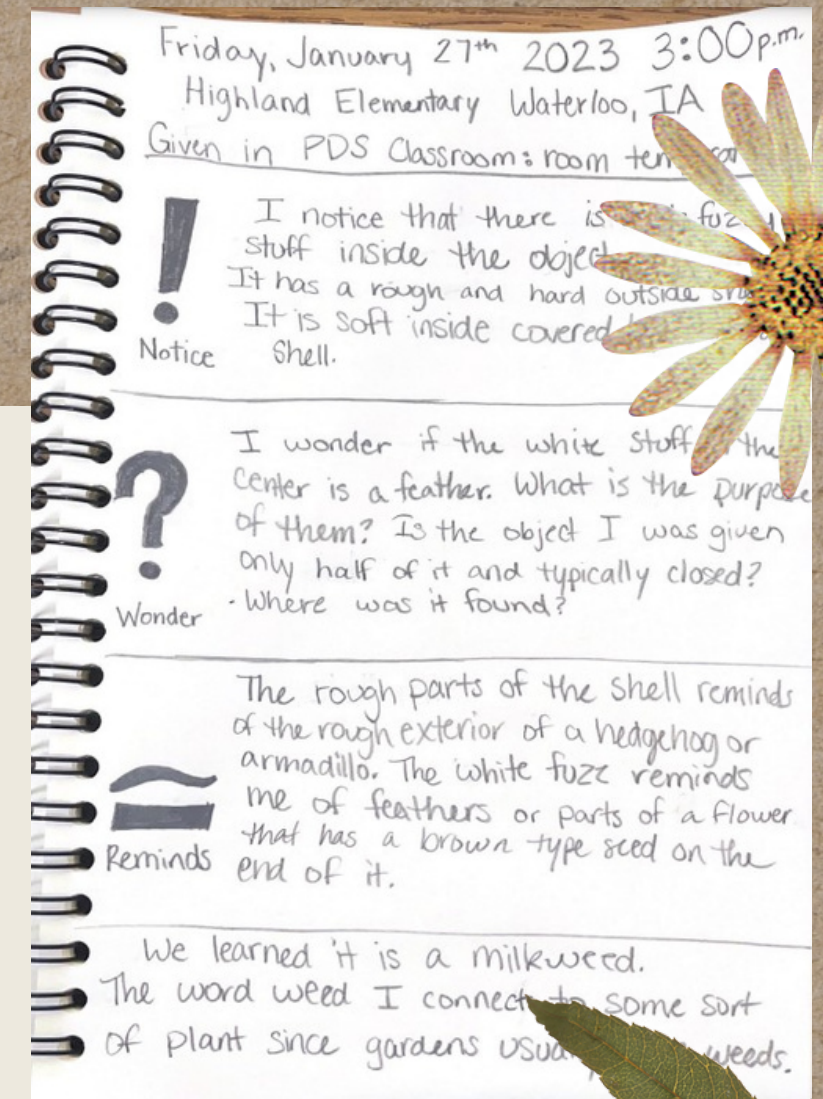 Friday, January 27th 2023 3:00p.m.
Highland Elementary Waterloo, IA
Given in PDS Classroom: room
I notice that there is
stuff inside the object
It has a rough and hard outside
It is soft inside covered
Shell.
Notice
I wonder if the white stuff the
center is a feather. What is the purpose
of them? Is the object I was given
only half of it and typically closed?
. Where was it found?
Wonder
The rough parts of the shell reminds
of the rough exterior of a hedgehog or
armadillo. The white fuzz reminds
me of feathers or parts of a flower
that has a brown type seed on the
end of it.
Reminds
We learned it is a milkweed.
The word weed I connect to some sort
of plant since gardens weeds.